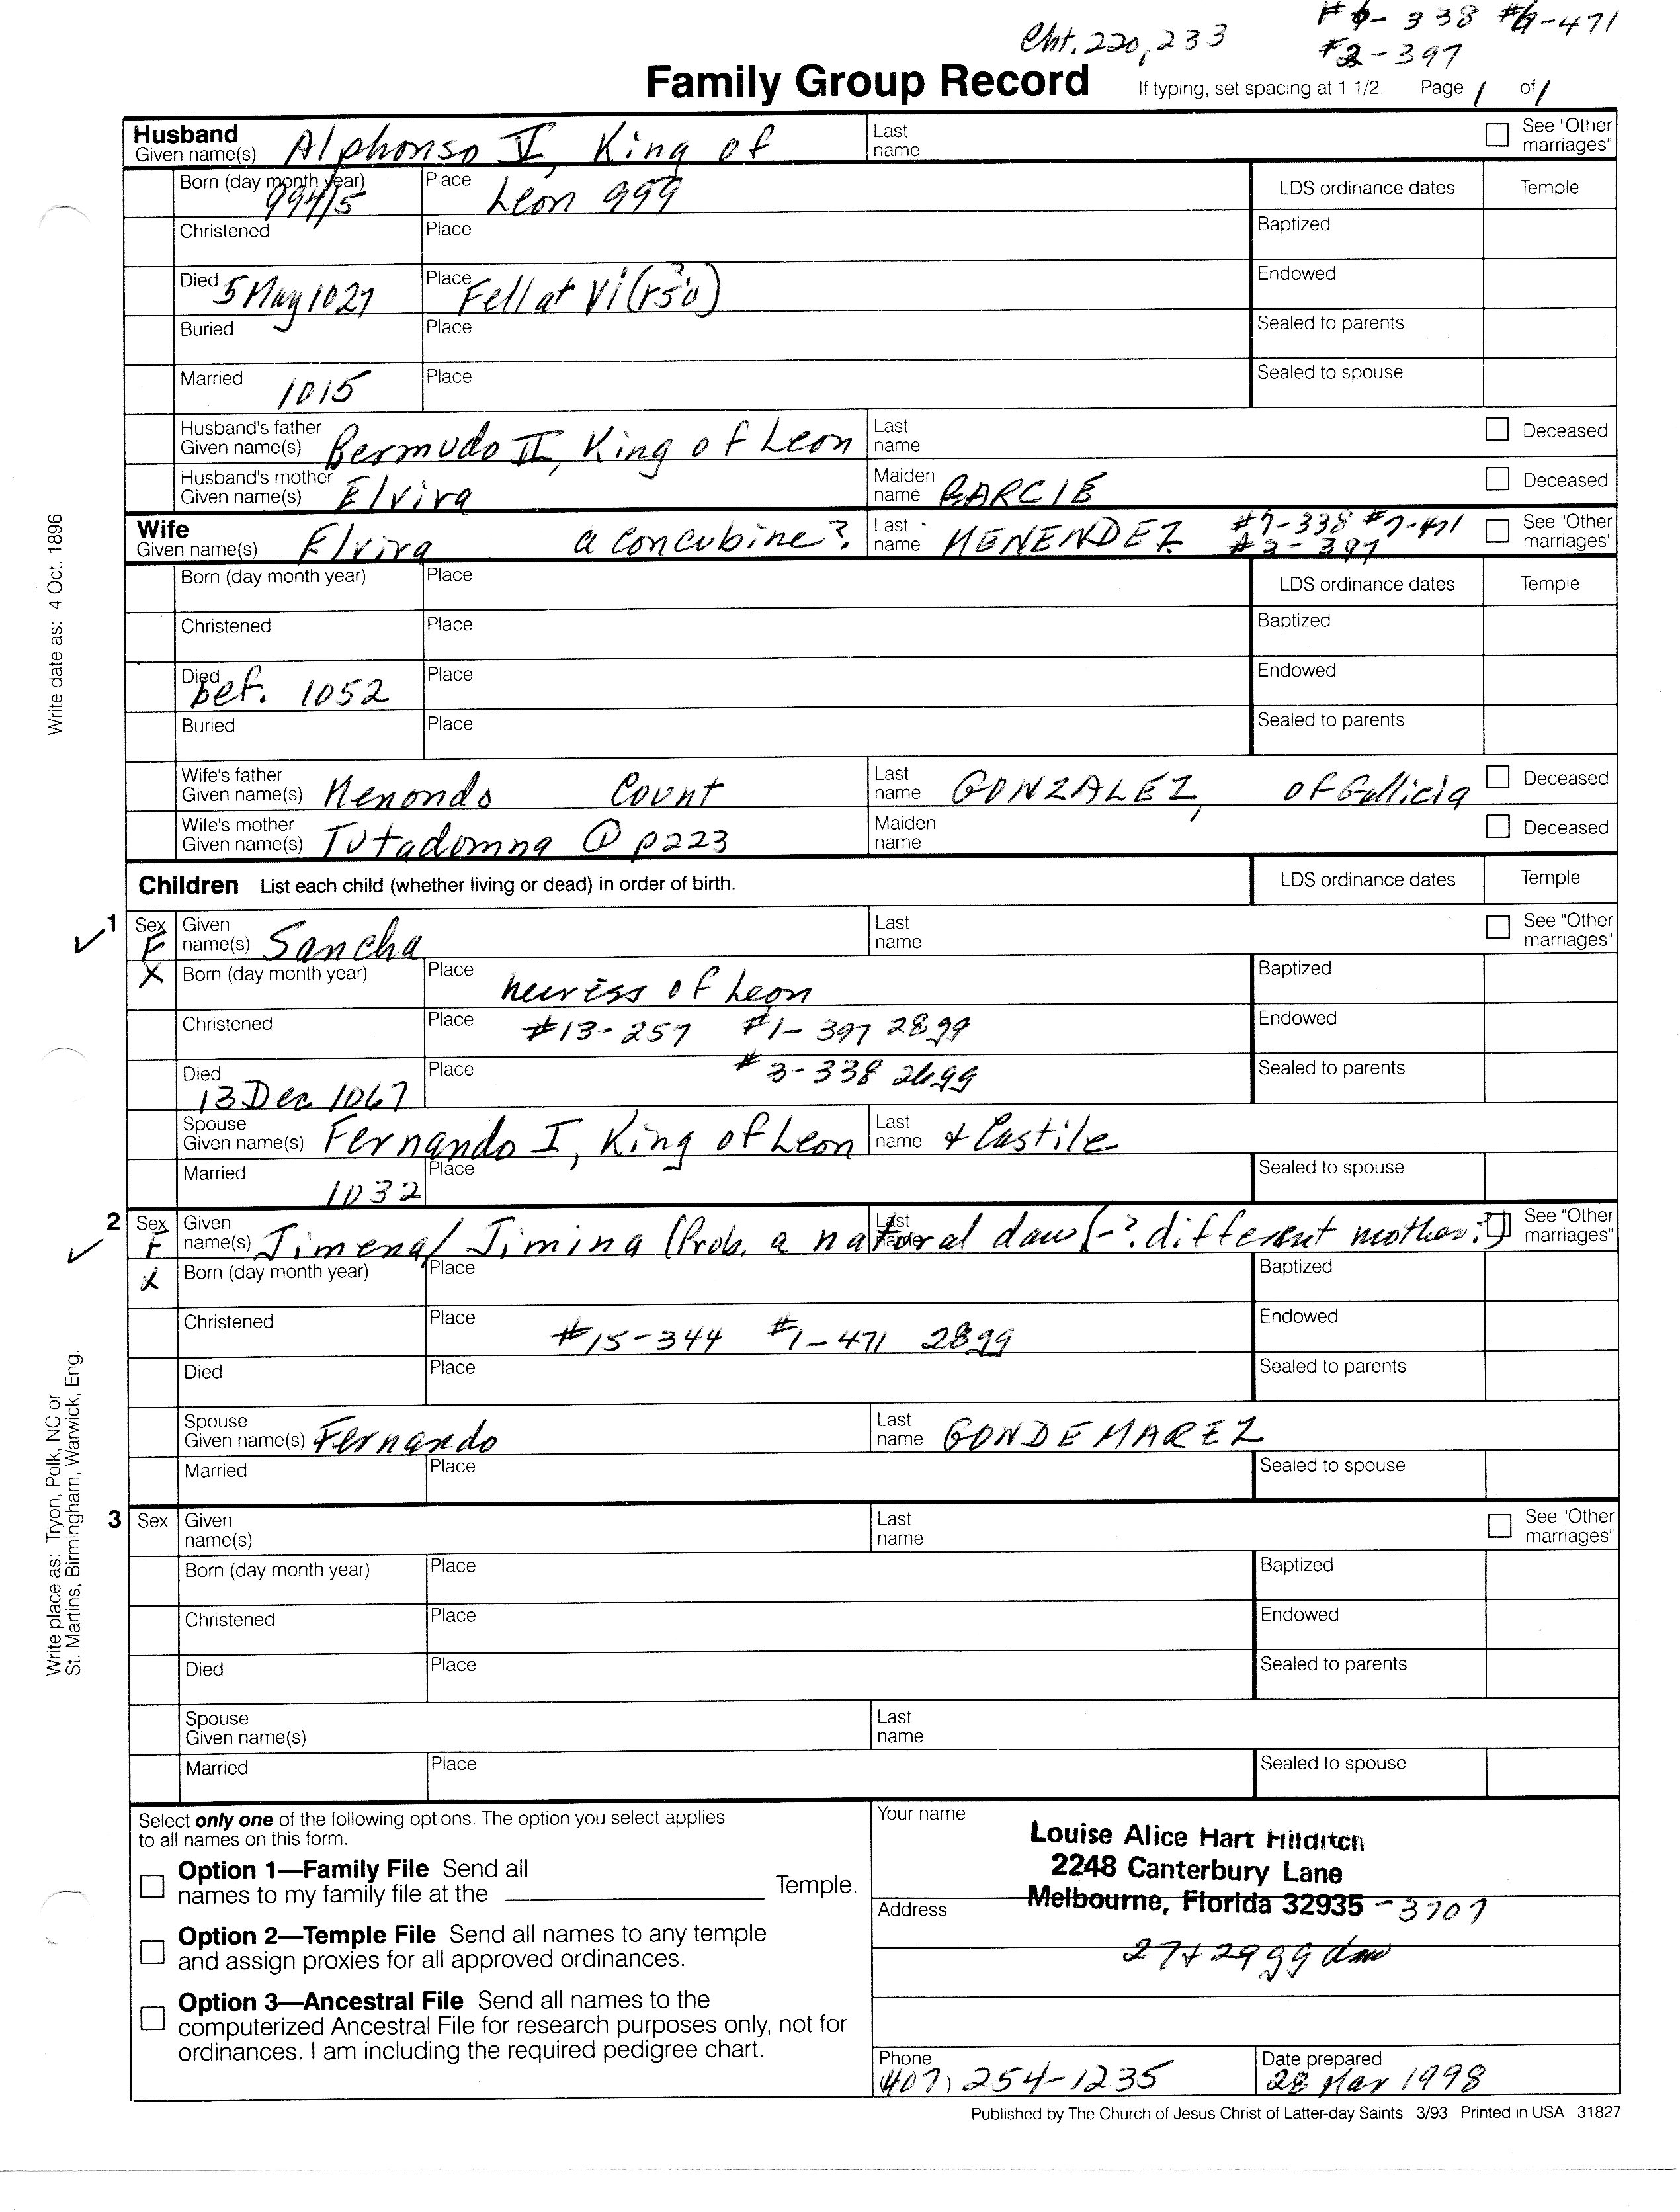 Cht. 220, 233 #6-338 #6-471
#2-397
Family Group Record If typing, set spacing at 1 1/2. Page 1 of 1
Husband
Given name(s) Alphonso V, King of Last name See "Other marriages"
Born (day month year) 994/5 Place Leon 999 LDS ordinance dates Temple
Christened Place Baptized
Died 5 May 1027 Place Fell at Endowed
Buried Place Sealed to parents
Married 1015 Place Sealed to spouse
Husband's father Given name(s) Bermudo II, King of Leon Last name Deceased
Husband's mother Given name(s) Elvira Maiden name GARCIE Deceased
Wife
Given name(s) Elvira a concubine? Last name MENENDEZ #7-338 #7-471 #3-397 See "Other marriages"
Born (day month year) Place LDS ordinance dates Temple
Christened Place Baptized
Died bef. 1052 Place Endowed
Buried Place Sealed to parents
Wife's father Given name(s) Menondo Count Last name GONZALEZ, of Gallicia Deceased
Wife's mother Given name(s) Tutadomna @ p223 Maiden name Deceased
Children List each child (whether living or dead) in order of birth. LDS ordinance dates Temple
1 Sex F Given name(s) Sancha Last name See "Other marriages"
X Born (day month year) Place heiress of Leon Baptized
Christened Place #13-257 #1-397 28gg Endowed
Died 13 Dec 1067 Place #3-338 26gg Sealed to parents
Spouse Given name(s) Fernando I, King of Leon Last name + Castile
Married 1032 Place Sealed to spouse
2 Sex F Given name(s) Jimena/ Jimina (Prob. a natural daw (-? different mother?) Last name See "Other marriages"
X Born (day month year) Place Baptized
Christened Place #15-344 #1-471 28gg Endowed
Died Place Sealed to parents
Spouse Given name(s) Fernando Last name GONDEMAREZ
Married Place Sealed to spouse
3 Sex Given name(s) Last name See "Other marriages"
Born (day month year) Place Baptized
Christened Place Endowed
Died Place Sealed to parents
Spouse Given name(s) Last name
Married Place Sealed to spouse
Select only one of the following options. The option you select applies
to all names on this form.
Option 1—Family File Send all
names to my family file at the Temple.
Option 2—Temple File Send all names to any temple
and assign proxies for all approved ordinances.
Option 3—Ancestral File Send all names to the
computerized Ancestral File for research purposes only, not for
ordinances. I am including the required pedigree chart.
Your name
Louise Alice Hart Hilditch
2248 Canterbury Lane
Address Melbourne, Florida 32935 -3707
27+29gg daw
Phone 407) 254-1235
Date prepared 28 Mar 1998
Published by The Church of Jesus Christ of Latter-day Saints 3/93 Printed in USA 31827
Write date as: 4 Oct. 1896
Write place as: Tryon, Polk, NC or
St. Martins, Birmingham, Warwick, Eng.